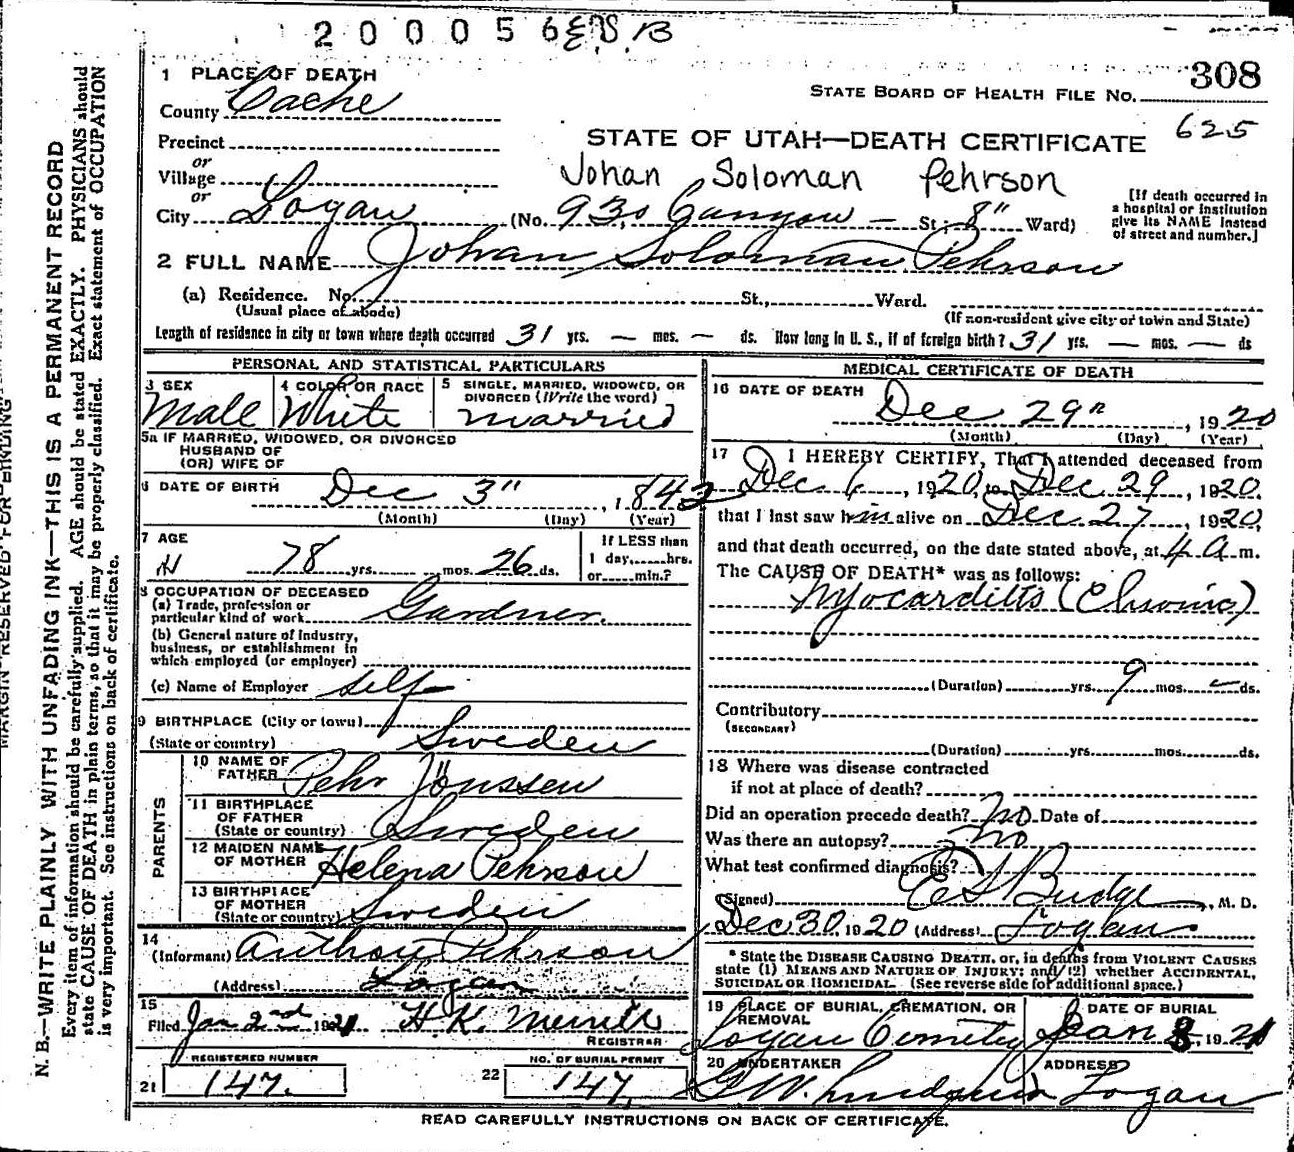 2 0 0 0 5 6 E.S.B
308
STATE BOARD OF HEALTH FILE NO.
625
STATE OF UTAH—DEATH CERTIFICATE
1 PLACE OF DEATH
County Cache
Precinct
or
Village
Johan Soloman Pehrson
or
City Logan (No. 930 Canyon — St; 8" Ward)
[If death occurred in
a hospital or institution
give its NAME instead
of street and number.]
2 FULL NAME Johan Soloman Pehrson
(a) Residence. No. St., Ward.
(Usual place of abode) (If non-resident give city or town and State)
Length of residence in city or town where death occurred 31 yrs. — mos. — ds. How long in U. S., if of foreign birth? 31 yrs. — mos. — ds
PERSONAL AND STATISTICAL PARTICULARS
3 SEX
Male
4 COLOR OR RACE
White
5 SINGLE, MARRIED, WIDOWED, OR
DIVORCED (Write the word)
married
5a IF MARRIED, WIDOWED, OR DIVORCED
HUSBAND OF
(OR) WIFE OF
6 DATE OF BIRTH Dec 3", 1842
(Month) (Day) (Year)
7 AGE
78 yrs. mos. 26 ds.
If LESS than
1 day, hrs.
or min.?
8 OCCUPATION OF DECEASED
(a) Trade, profession or
particular kind of work Gardner.
(b) General nature of Industry,
business, or establishment in
which employed (or employer)
(c) Name of Employer self
9 BIRTHPLACE (City or town)
(State or country) Sweden
PARENTS
10 NAME OF
FATHER Pehr Jönssen
11 BIRTHPLACE
OF FATHER
(State or country) Sweden
12 MAIDEN NAME
OF MOTHER Helena Pehrson
13 BIRTHPLACE
OF MOTHER
(State or country) Sweden
14
(Informant) Anthon Pehrson
(Address) Logan
15
Filed Jan 2nd 1921 H K. Merrill
REGISTRAR
REGISTERED NUMBER
21 147.
NO. OF BURIAL PERMIT
22 147.
MEDICAL CERTIFICATE OF DEATH
16 DATE OF DEATH
Dec 29", 1920
(Month) (Day) (Year)
17 I HEREBY CERTIFY, That I attended deceased from
Dec 6, 1920, to Dec 29, 1920.
that I last saw him alive on Dec. 27, 1920,
and that death occurred, on the date stated above, at 4 a m.
The CAUSE OF DEATH* was as follows:
Myocarditis (Chronic)
(Duration) yrs. 9 mos. – ds.
Contributory
(SECONDARY)
(Duration) yrs. mos. ds.
18 Where was disease contracted
if not at place of death?
Did an operation precede death? no Date of
Was there an autopsy? no
What test confirmed diagnosis?
(Signed) E S Budge, M. D.
Dec 30. 1920 (Address) Logan
* State the DISEASE CAUSING DEATH, or, in deaths from VIOLENT CAUSES
state (1) MEANS AND NATURE OF INJURY; and (2) whether ACCIDENTAL,
SUICIDAL OR HOMICIDAL. (See reverse side for additional space.)
19 PLACE OF BURIAL, CREMATION, OR
REMOVAL
Logan Cemetery
DATE OF BURIAL
Jan 3, 1921
20 UNDERTAKER
ADDRESS
Logan
READ CAREFULLY INSTRUCTIONS ON BACK OF CERTIFICATE.
MARGIN RESERVED FOR BINDING
N. B.—WRITE PLAINLY WITH UNFADING INK—THIS IS A PERMANENT RECORD
Every item of information should be carefully supplied. AGE should be stated EXACTLY. PHYSICIANS should
state CAUSE OF DEATH in plain terms, so that it may be properly classified. Exact statement of OCCUPATION
is very important. See instructions on back of certificate.